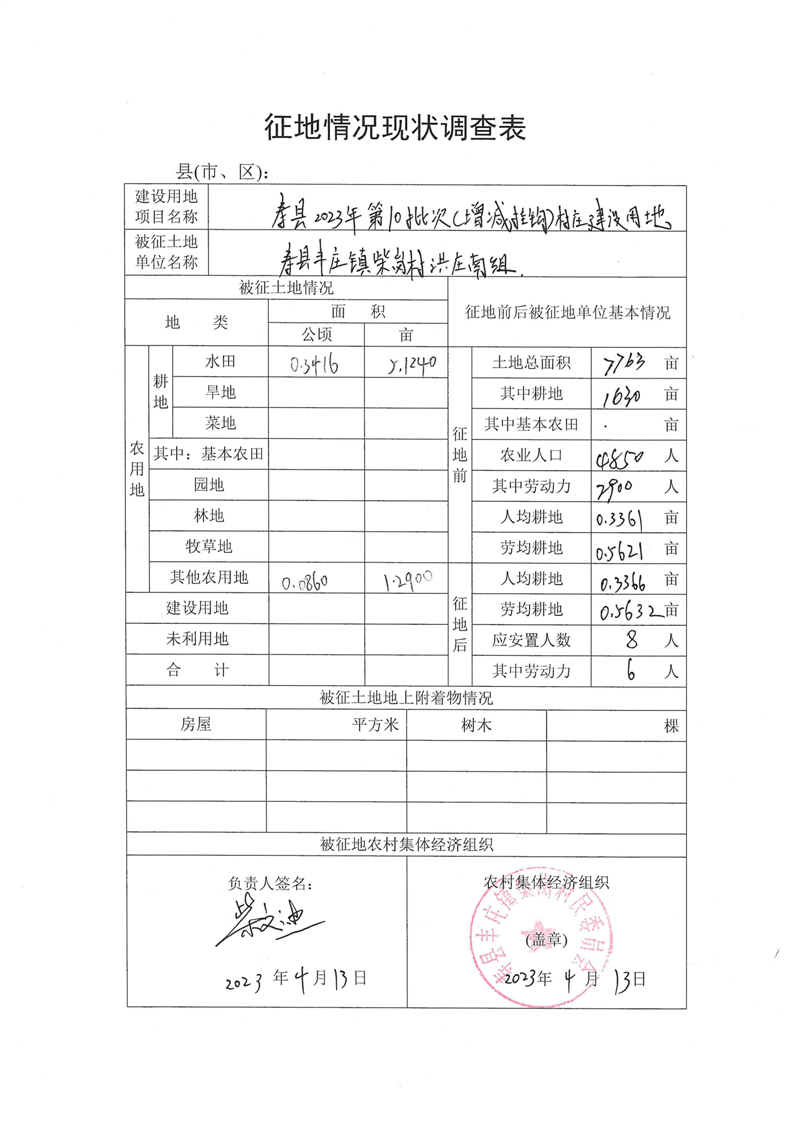 征地情况现状调查表
县(市、区):
建设用地项目名称 寿县2023年第10批次(增减挂钩)村庄建设用地
被征土地单位名称 寿县丰庄镇柴岗村洪庄南组.
被征土地情况 征地前后被征地单位基本情况
地 类 面 积
公顷 亩
农用地 耕地 水田 0.3416 5.1240 征地前 土地总面积 7763 亩
旱地 其中耕地 1630 亩
菜地 其中基本农田 . 亩
其中：基本农田 农业人口 4850 人
园地 其中劳动力 2900 人
林地 人均耕地 0.3361 亩
牧草地 劳均耕地 0.5621 亩
其他农用地 0.0860 1.2900 征地后 人均耕地 0.3366 亩
建设用地 劳均耕地 0.5632 亩
未利用地 应安置人数 8 人
合 计 其中劳动力 6 人
被征土地地上附着物情况
房屋 平方米 树木 棵
被征地农村集体经济组织
负责人签名： 农村集体经济组织
柴文迪
(盖章)
寿县丰庄镇柴岗村民委员会
2023 年 4 月 13 日 2023年 4 月 13日